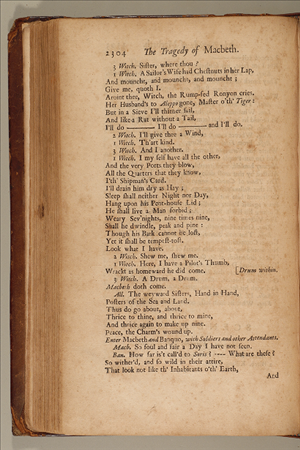 2304 The Tragedy of Macbeth.
3 Witch. Sister, where thou?
1 Witch. A Sailor's Wife had Chestnuts in her Lap,
And mouncht, and mouncht, and mouncht;
Give me, quoth I.
Aroint thee, Witch, the Rump-fed Ronyon cries.
Her Husband's to Aleppo gone, Master o'th' Tiger:
But in a Sieve I'll thither sail,
And like a Rat without a Tail,
I'll do ——— I'll do ——— and I'll do.
2 Witch. I'll give thee a Wind,
1 Witch. Th'art kind.
3 Witch. And I another.
1 Witch. I my self have all the other,
And the very Ports they blow,
All the Quarters that they know,
I'th' Shipman's Card.
I'll drain him dry as Hay;
Sleep shall neither Night nor Day,
Hang upon his Pent-house Lid;
He shall live a Man forbid;
Weary Sev'nights, nine times nine,
Shall he dwindle, peak and pine:
Though his Bark cannot be lost,
Yet it shall be tempest-tost.
Look what I have.
2 Witch. Shew me, shew me.
1 Witch. Here, I have a Pilot's Thumb,
Wrackt as homeward he did come. [Drum within.
3 Witch. A Drum, a Drum,
Macbeth doth come.
All. The weyward Sisters, Hand in Hand,
Posters of the Sea and Land.
Thus do go about, about,
Thrice to thine, and thrice to mine,
And thrice again to make up nine.
Peace, the Charm's wound up.
Enter Macbeth and Banquo, with Soldiers and other Attendants.
Mach. So foul and fair a Day I have not seen.
Ban. How far is't call'd to Soris? ---- What are these?
So wither'd, and so wild in their attire,
That look not like th' Inhabitants o'th' Earth,
And